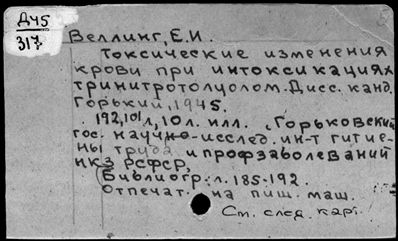 Дч5
317
Веллинг, Е.И.
Токсические изменения
крови при интоксикациях
тринитротолуолом. Дисс. канд.
Горький, 1945.
192,101 л, 10 л. илл. (Горьковский
гос. научно-исслед. ин-т гигие-
ны труда и профзаболеваний
НКЗ РСФСР,
Библиогр.: л. 185-192.
Отпечат. на пиш. маш.
См. след. карт.